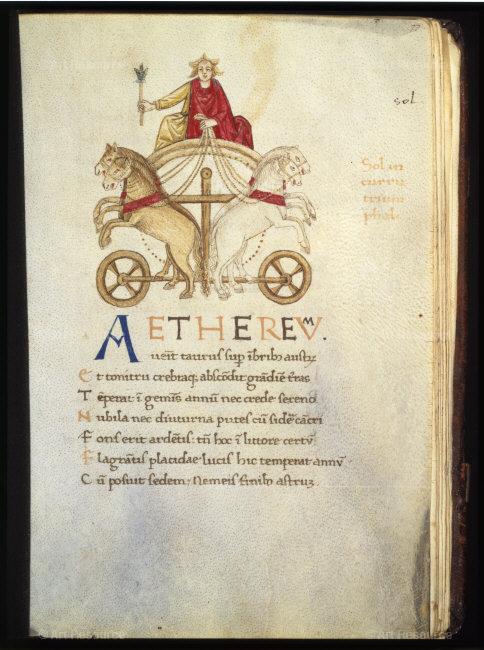 sol
Sol in
curru
trium
phali
AETHEREUM.
ueit taurus sup ībrib; austr
Et tonitru crebraq; abscōdit grādīē
Tēperat ī geminis annū nec crede sereno
Nubila nec diuturna putes cū sidē cācri
Fons erit ardētis tn̄ hoc ī littore certū
Flagrātis placidae lucis hic temperat annū
Cū posuit sedem Nemeis